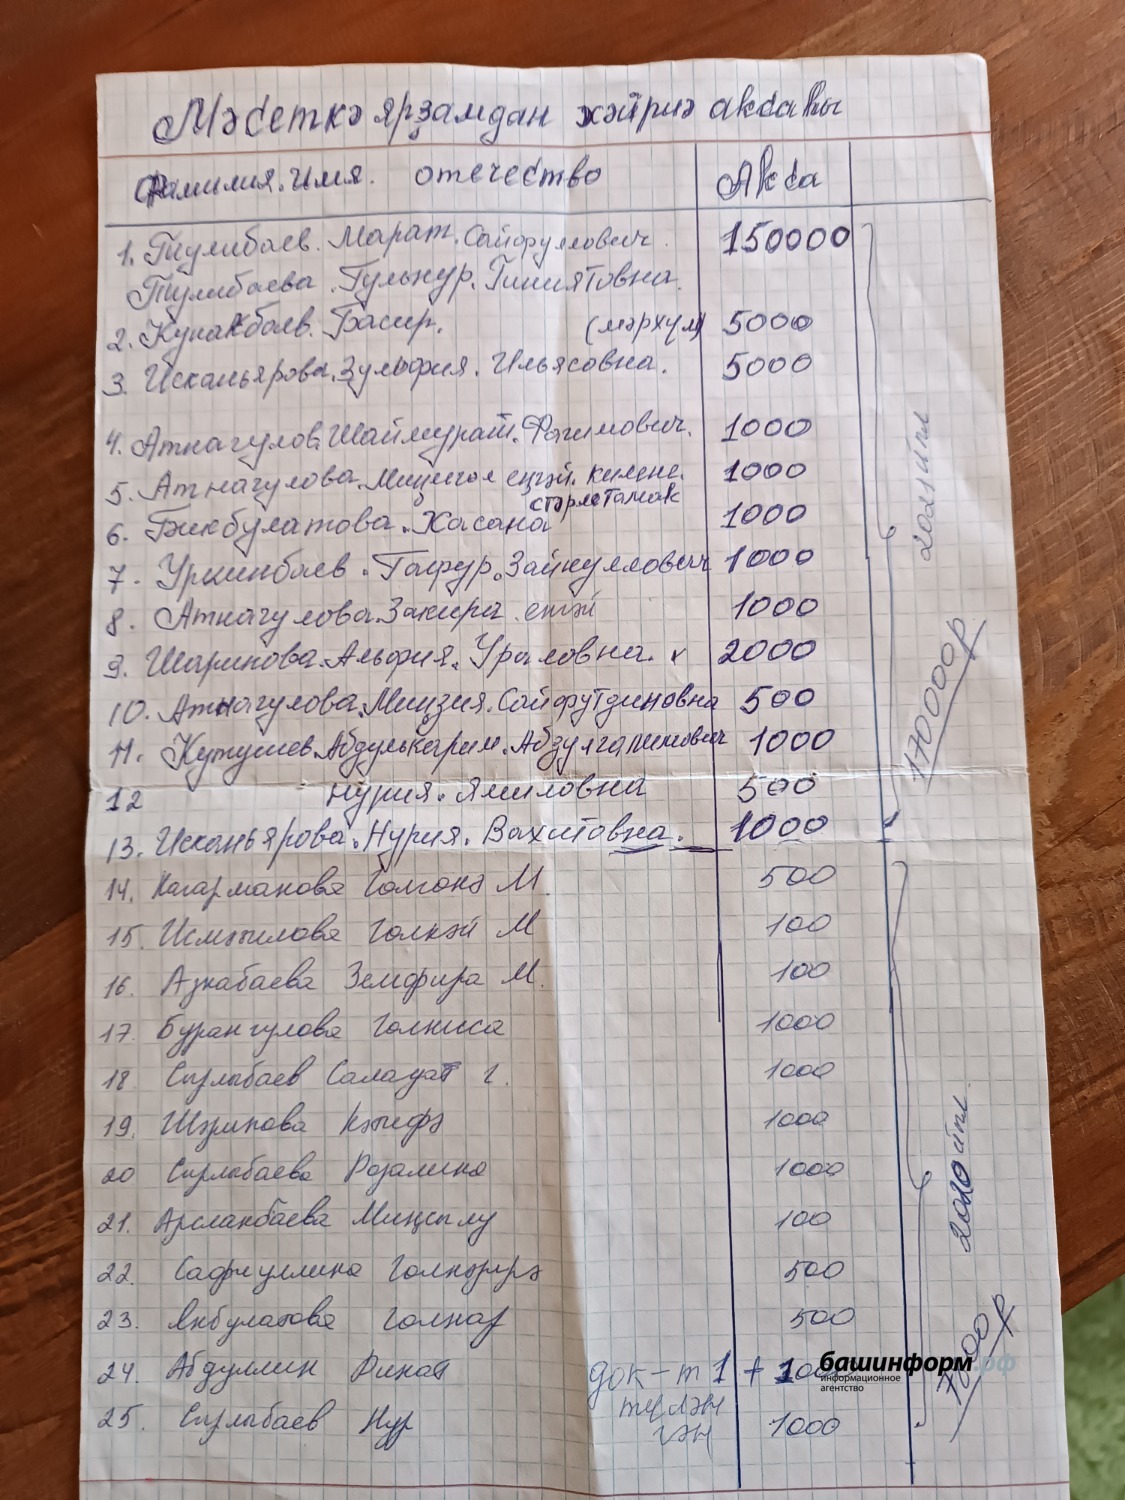 Мәсеткә ярҙамдан хәйриә аксаһы
Фамилия. Имя. отчество Акса
1. Тулибаев. Марат. Сайфуллович. 150000
Тулибаева. Гульнур. Гиниятовна.
2. Кунакбаев. Басир. (мәрхүм) 5000
3. Исканьярова. Зульфия. Ильясовна. 5000
4. Атнагулов. Шаймурат. Фатимович. 1000
5. Атнагулова. еңгәй. килене. 1000
стәрлетамак
6. Бикбулатова. Хасана 1000
7. Уркинбаев. Гафур. Зайнуллович 1000
8. Атнагулова. Закира еңгәй 1000
9. Шарипова. Альфия. Ураловна. 2000
10. Атнагулова. Миңзия. Сайфутдиновна 500
11. Кутушев. Абдулькарим. 1000
12 Нурия. Ямиловна 500
13. Исканьярова. Нурия. Вахитовна. 1000
2021 йыл
170000 р
14. Кагарманова М. 500
15. Исмәғилова Гөлкәй М 100
16. Азнабаева Земфира М. 100
17. Бурангулова Гөлниса 1000
18 Сырлыбаев Салауат г. 1000
19. Шәрипова Кәтифә 1000
20 Сырлыбаева Розалина 1000
21. Арсланбаева Миңсылу 100
22. Сафиуллина 500
23. Янбулатова Гөлназ 500
24. Абдуллин Ринат док-т 1 + 1000
түләнгән
25. Сырлыбаев Нур 1000
2020 йыл
7800 р
башинформ.рф
информационное
агентство